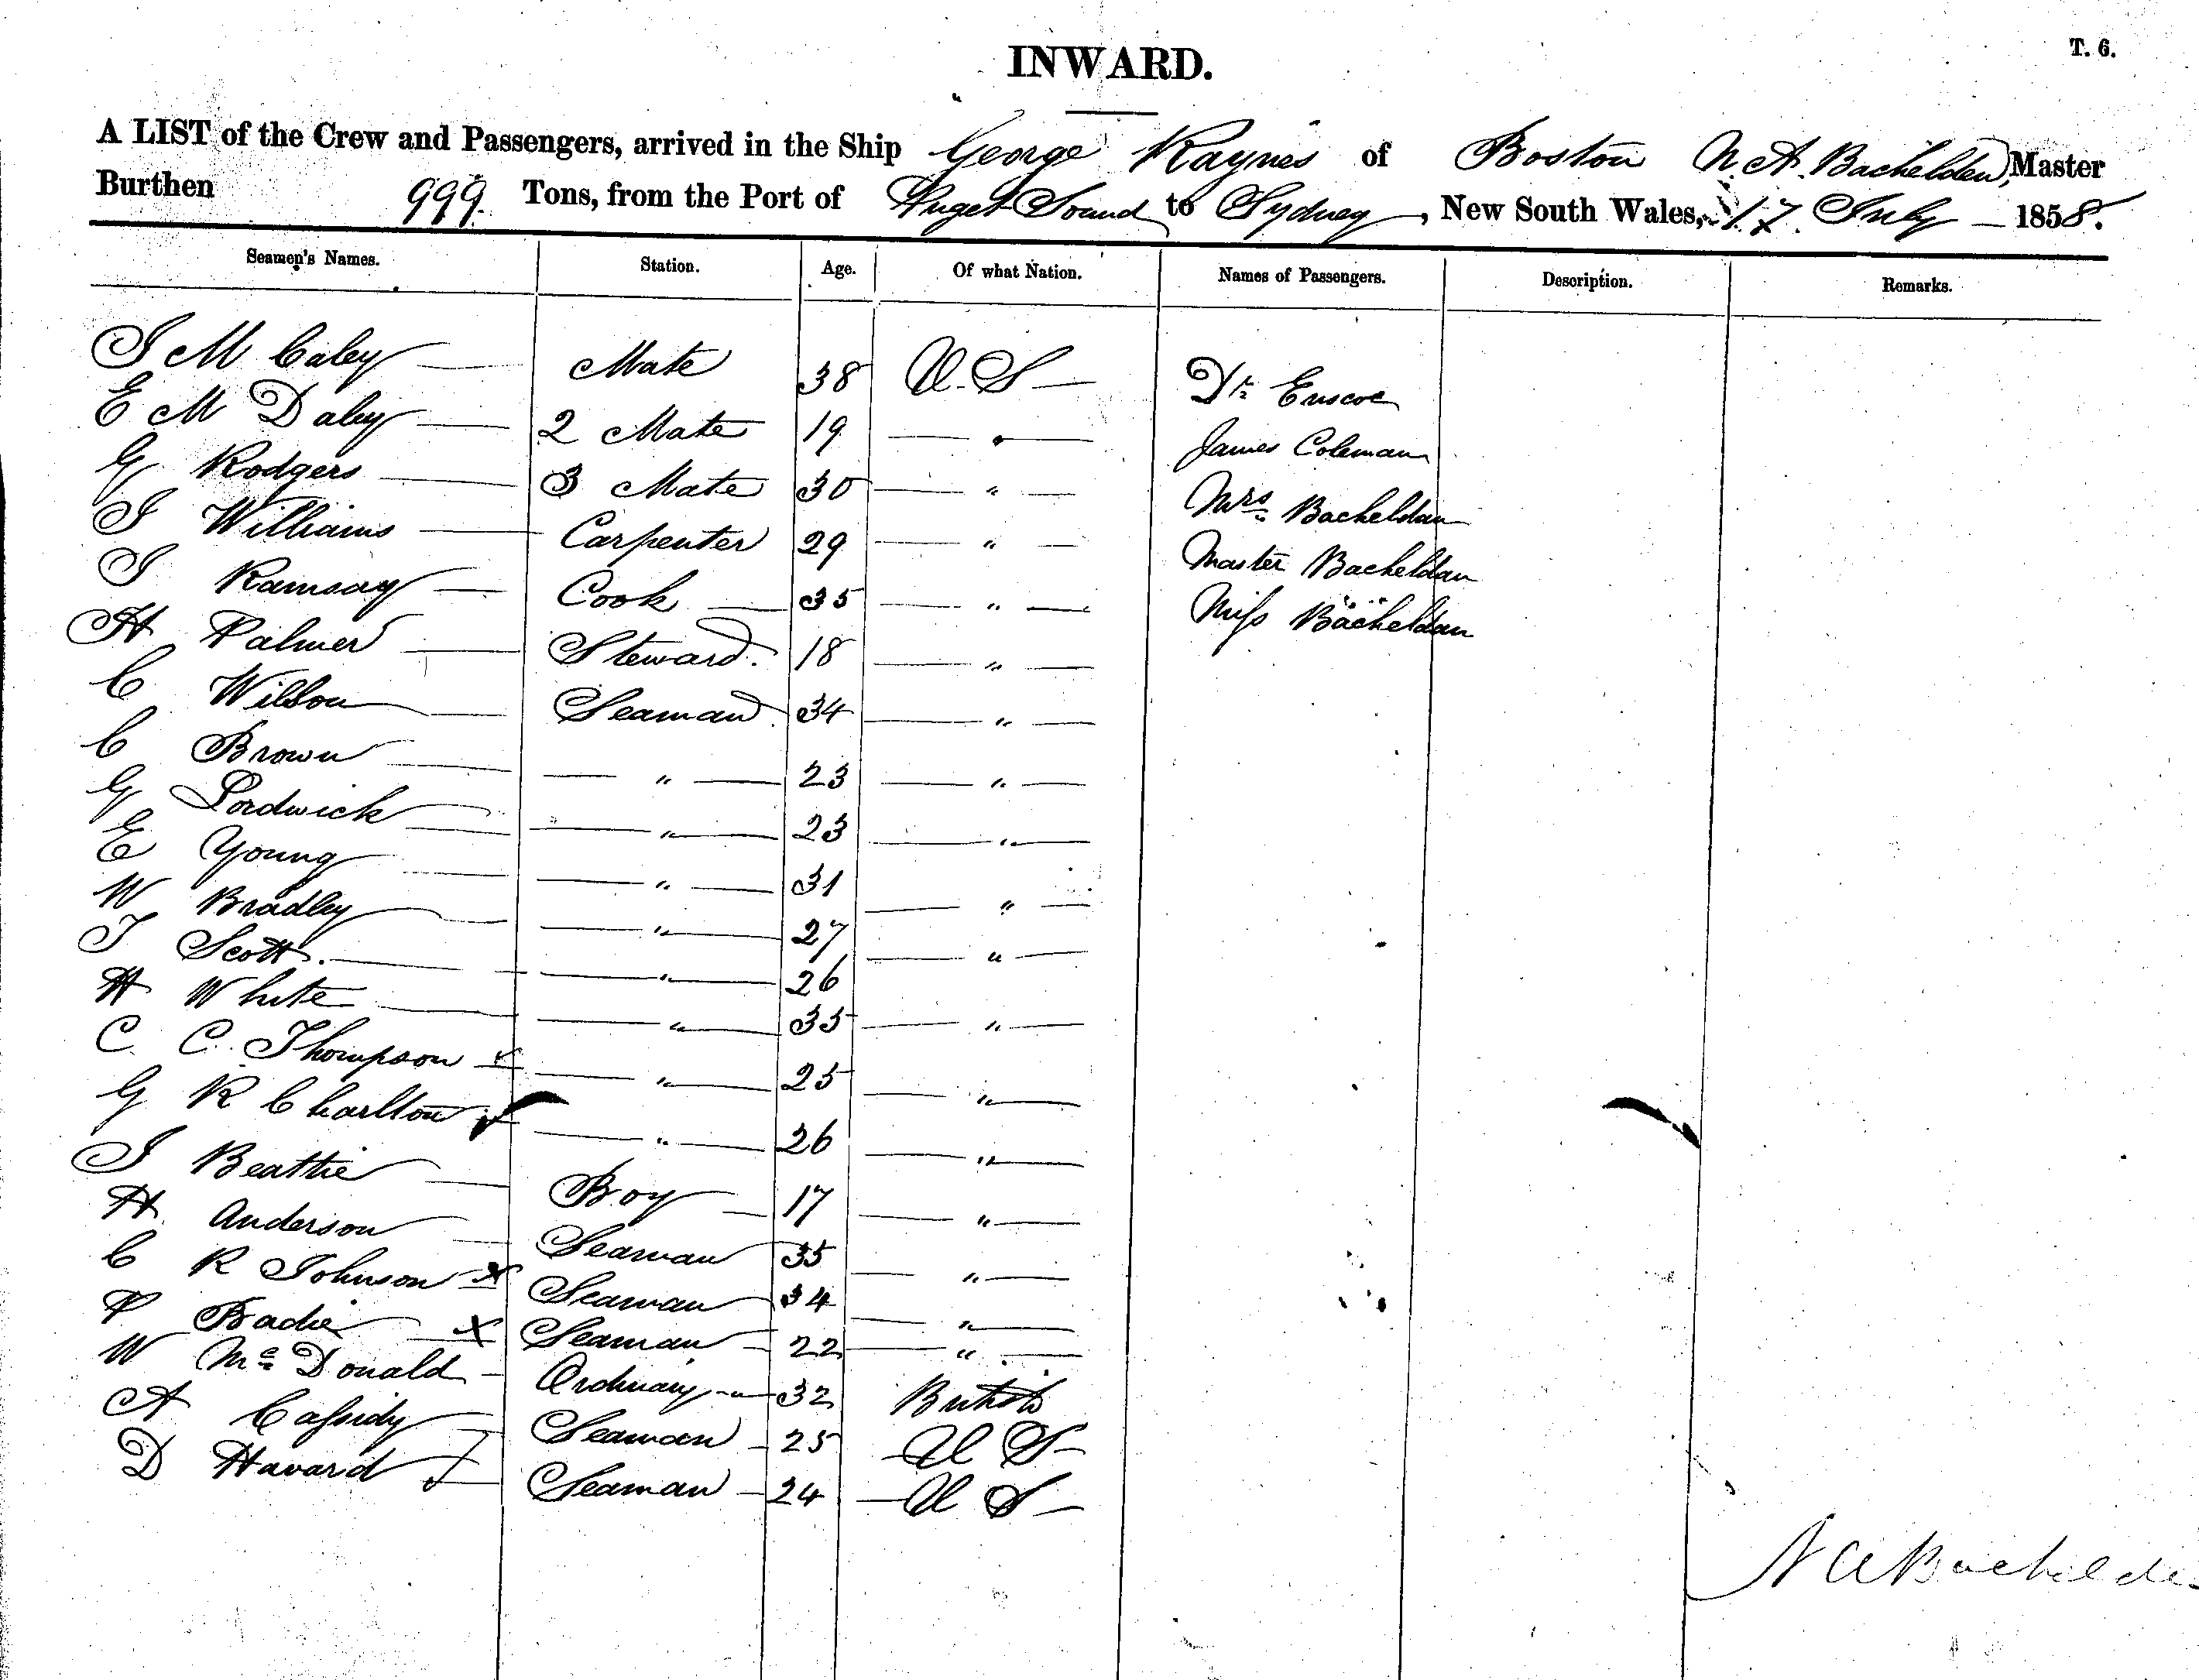 T. 6.
INWARD.
A LIST of the Crew and Passengers, arrived in the Ship George Raynes of Boston N. A. Bachelden, Master
Burthen 999 Tons, from the Port of Puget Sound to Sydney, New South Wales, 17 July 1858.
Seamen's Names. Station. Age. Of what Nation. Names of Passengers. Description. Remarks.
J M Caley — Mate 38 U. S — Dr Enscoe
E M Daley — 2 Mate 19 — " — James Coleman
G Rodgers — 3 Mate 30 — " — Mrs Bacheldan
J Williams — Carpenter 29 — " — Master Bacheldan
J Ramsay — Cook — 35 — " — Miss Bacheldan
H Palmer — Steward. 18 — " —
C Wilson — Seaman 34 — " —
C Brown — " — 23 — " —
G Lordwick — " — 23 — " —
E Young — " — 31 — " —
W Bradley — " — 27 — " —
T Scott. — " — 26
H White — " — 35 — " —
C. C. Thompson — " — 25 — " —
G R Charlton — " — 26 — " —
J Beattie — Boy — 17 — " —
H Anderson — Seaman 35 — " —
C R Johnson x Seaman 34 — " —
P Badie x Seaman — 22 — " —
W Mc Donald — Ordinary — " — 32 British
A Cassidy — Seaman — 25 — U S —
D Havard — Seaman — 24 — U S —
N A Bachelde